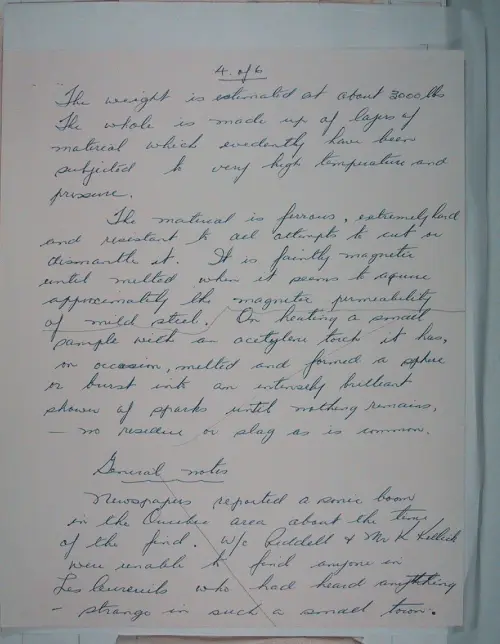 4 of 6
The weight is estimated at about 3000 lbs
The whole is made up of layers of
material which evedantly have been
subjected to very high temperature and
pressure.
The material is ferrous, extremely hard
and resistant to all attempts to cut or
dismantle it. It is faintly magnetic
until melted when it seems to aquire
approximately the magnetic permeability
of mild steel. On heating a small
sample with an acetylene torch it has,
on occasion, melted and formed a sphere
or burst into an intensely brilliant
shower of sparks until nothing remains,
— no residue or slag as is common.
General notes
Newspapers reported a sonic boom
in the Quebec area about the time
of the find. W/c Riddell & Mr K
were unable to find anyone in
Les Ecureuils who had heard anything
- strange in such a small town.